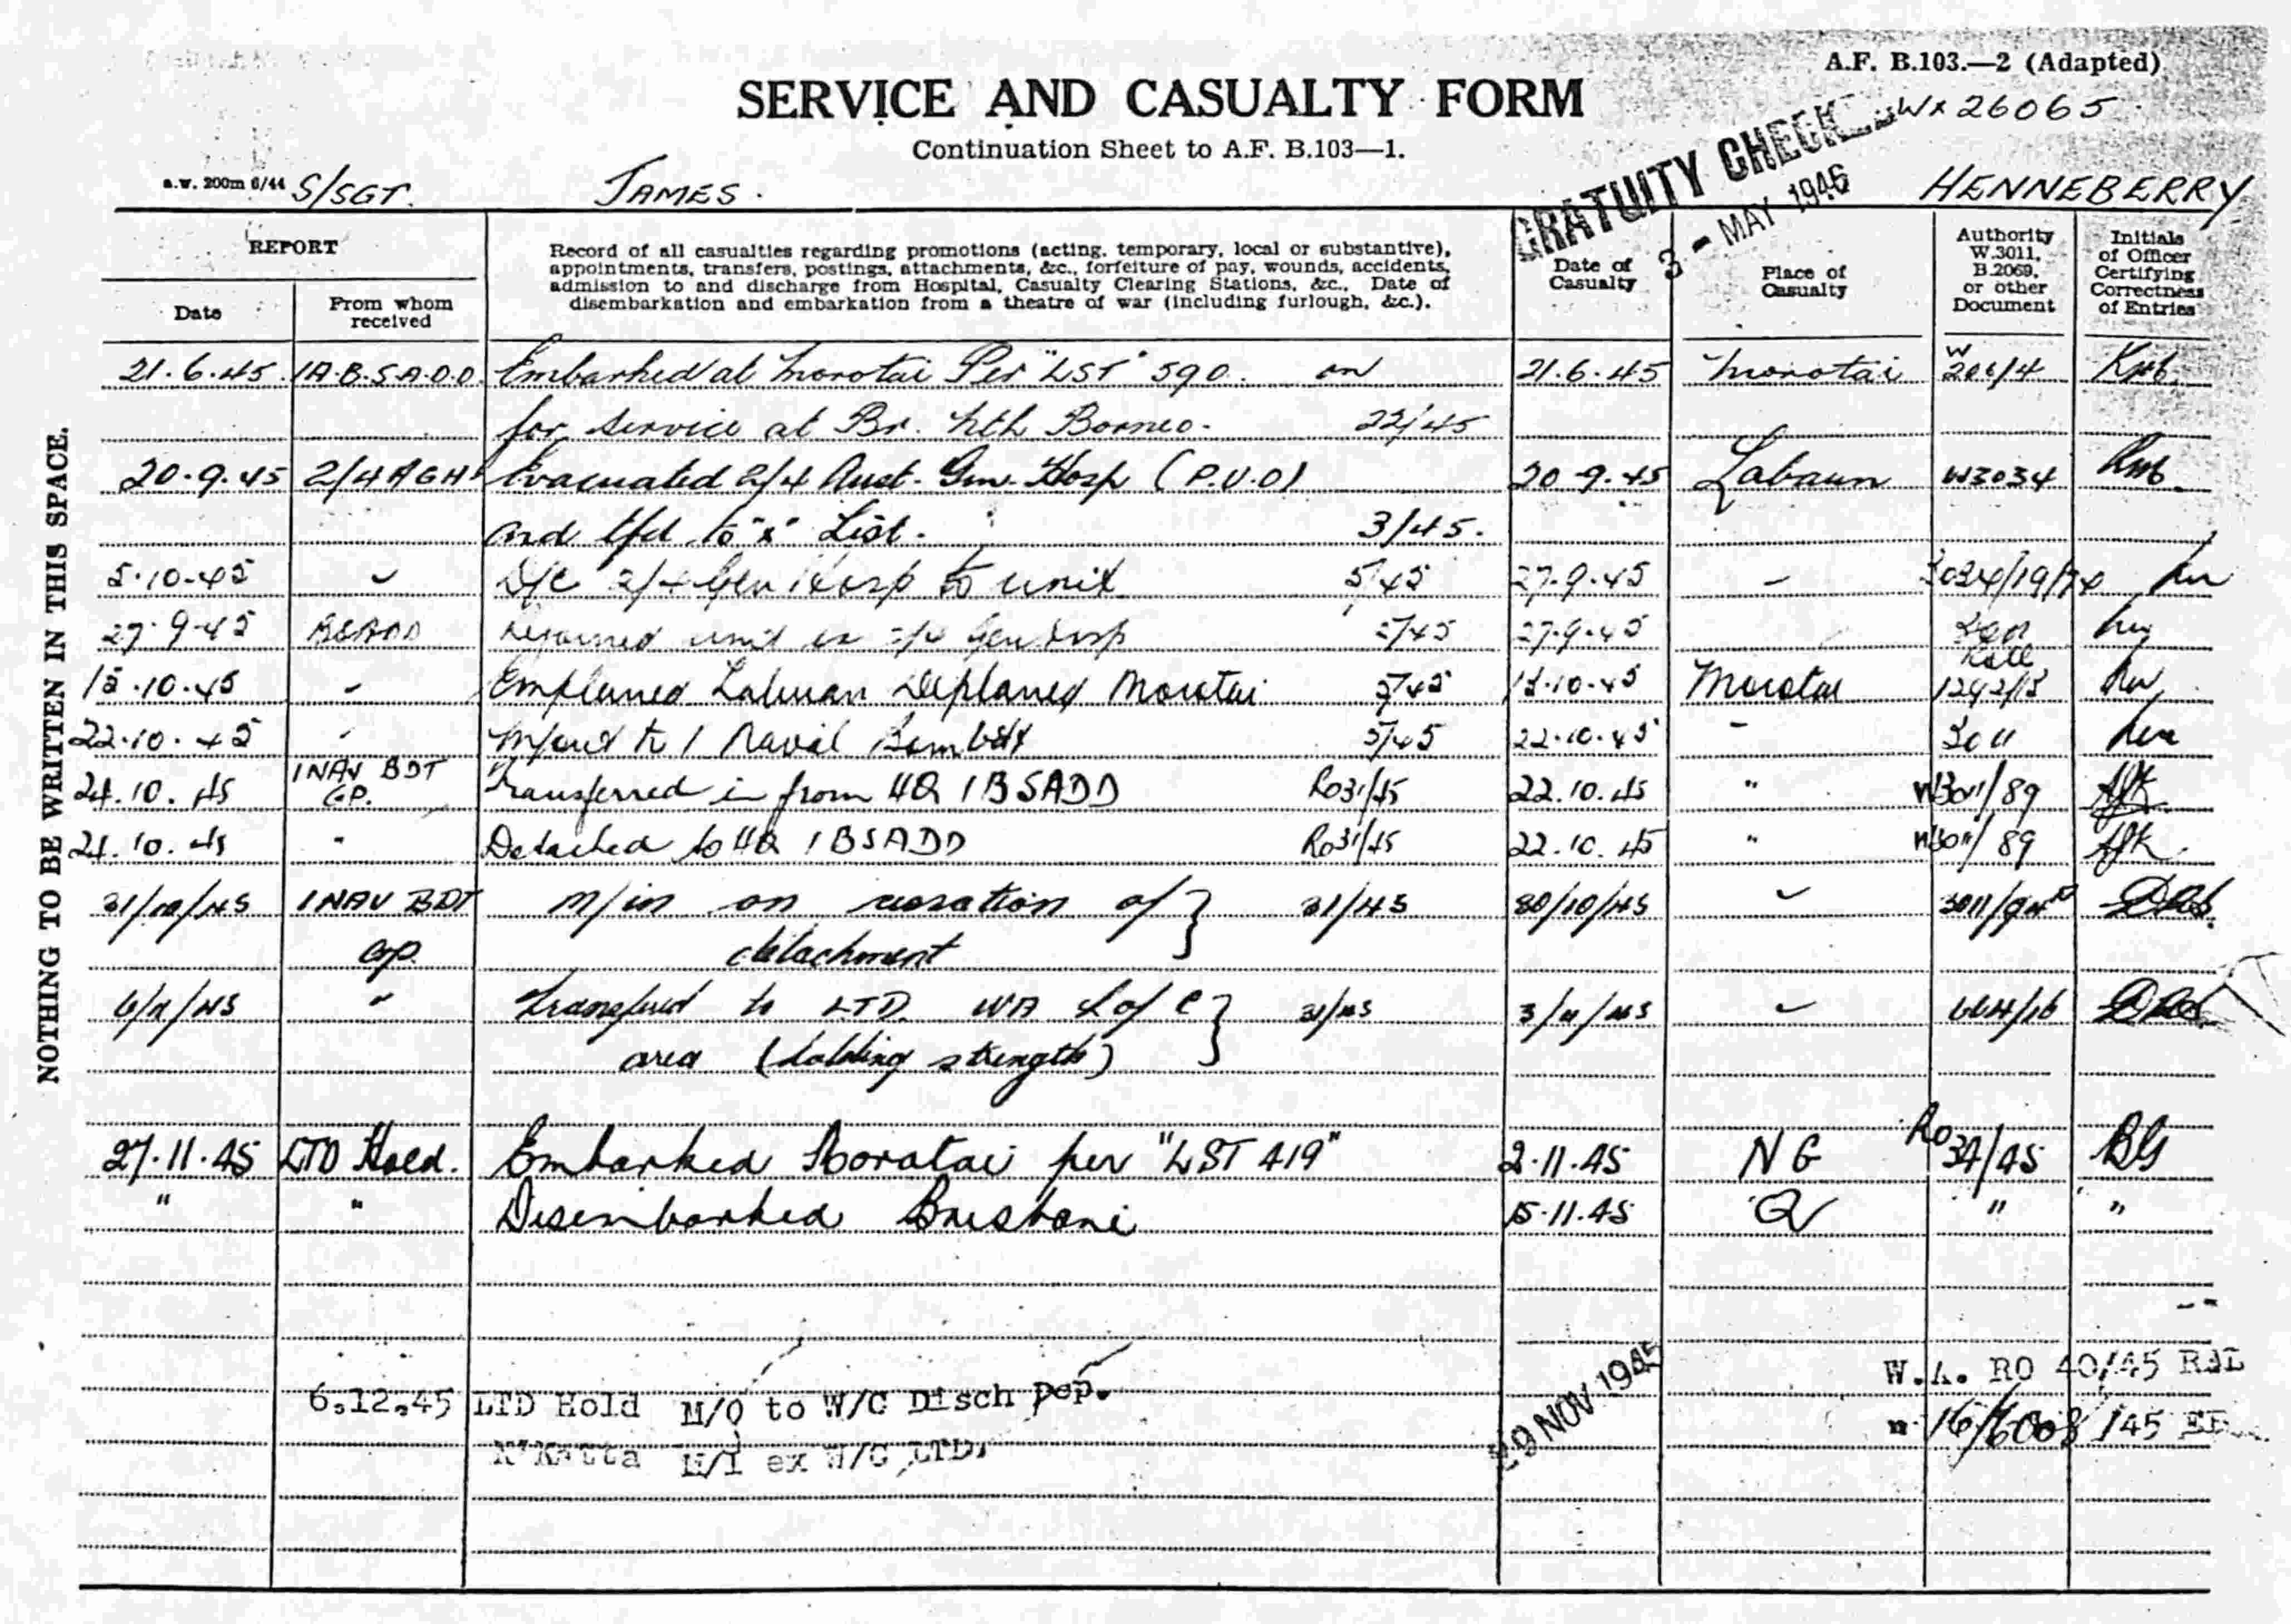 A.F. B.103.—2 (Adapted)
SERVICE AND CASUALTY FORM
WX 26065
Continuation Sheet to A.F. B.103—1.
GRATUITY CHECK
3 - MAY 1946
a.w. 200m 6/44 S/SGT. JAMES. HENNEBERRY
REPORT
Date
From whom received
Record of all casualties regarding promotions (acting, temporary, local or substantive),
appointments, transfers, postings, attachments, &c., forfeiture of pay, wounds, accidents,
admission to and discharge from Hospital, Casualty Clearing Stations, &c., Date of
disembarkation and embarkation from a theatre of war (including furlough, &c.).
Date of Casualty
Place of Casualty
Authority W.3011, B.2069, or other Document
Initials of Officer Certifying Correctness of Entries
NOTHING TO BE WRITTEN IN THIS SPACE.
21.6.45 1A.B.S.A.D.D. Embarked at Morotai Per "LST" 590. on 21.6.45 Morotai
for service at Br. Nth Borneo. 22/45
20.9.45 2/4 AGH Evacuated 2/4 Aust. Gen. Hosp (P.U.O) 20-9-45 Labaun W3034
and tfd to "x" List. 3/45.
5.10.45 D/c 2/4 Gen Hosp to unit 5/45 27.9.45
27.9.45 Rejoined unit ex 2/4 Gen Hosp 5/45 27.9.45
15.10.45 Emplaned Labuan Deplaned Morotai 5/45 15.10.45 Morotai
22.10.45 to 1 Naval Bombdt 5/45 22.10.45 " 3011
24.10.45 1 NAV BDT GP. Transferred in from HQ 1 BSADD Ro31/45 22.10.45 " W3011/89
24.10.45 " Detached to HQ 1 BSADD Ro31/45 22.10.45 " W3011/89
31/10/45 1 NAV BDT m/in on cessation of } 31/45 30/10/45
GP. detachment
6/11/45 " Transferred to LTD WA L of C } 31/45 3/11/45 664/16
area (holding strength)
27.11.45 LTD Hold. Embarked Moratai per "LST 419" 2.11.45 NG Ro 34/45 BG
" " Disembarked Brisbane 15.11.45 Q " "
6.12.45 LTD Hold M/O to W/C Disch Dep. W.A. RO 40/45
K'Katta M/I ex W/C LTD. 29 NOV 1945 " 16/6008/45